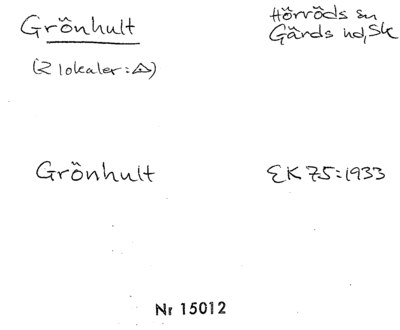 Grönhult
Hörröds sn
Gärds hd, Sk
(2 lokaler: △)
Grönhult
EK 75:1933
Nr 15012